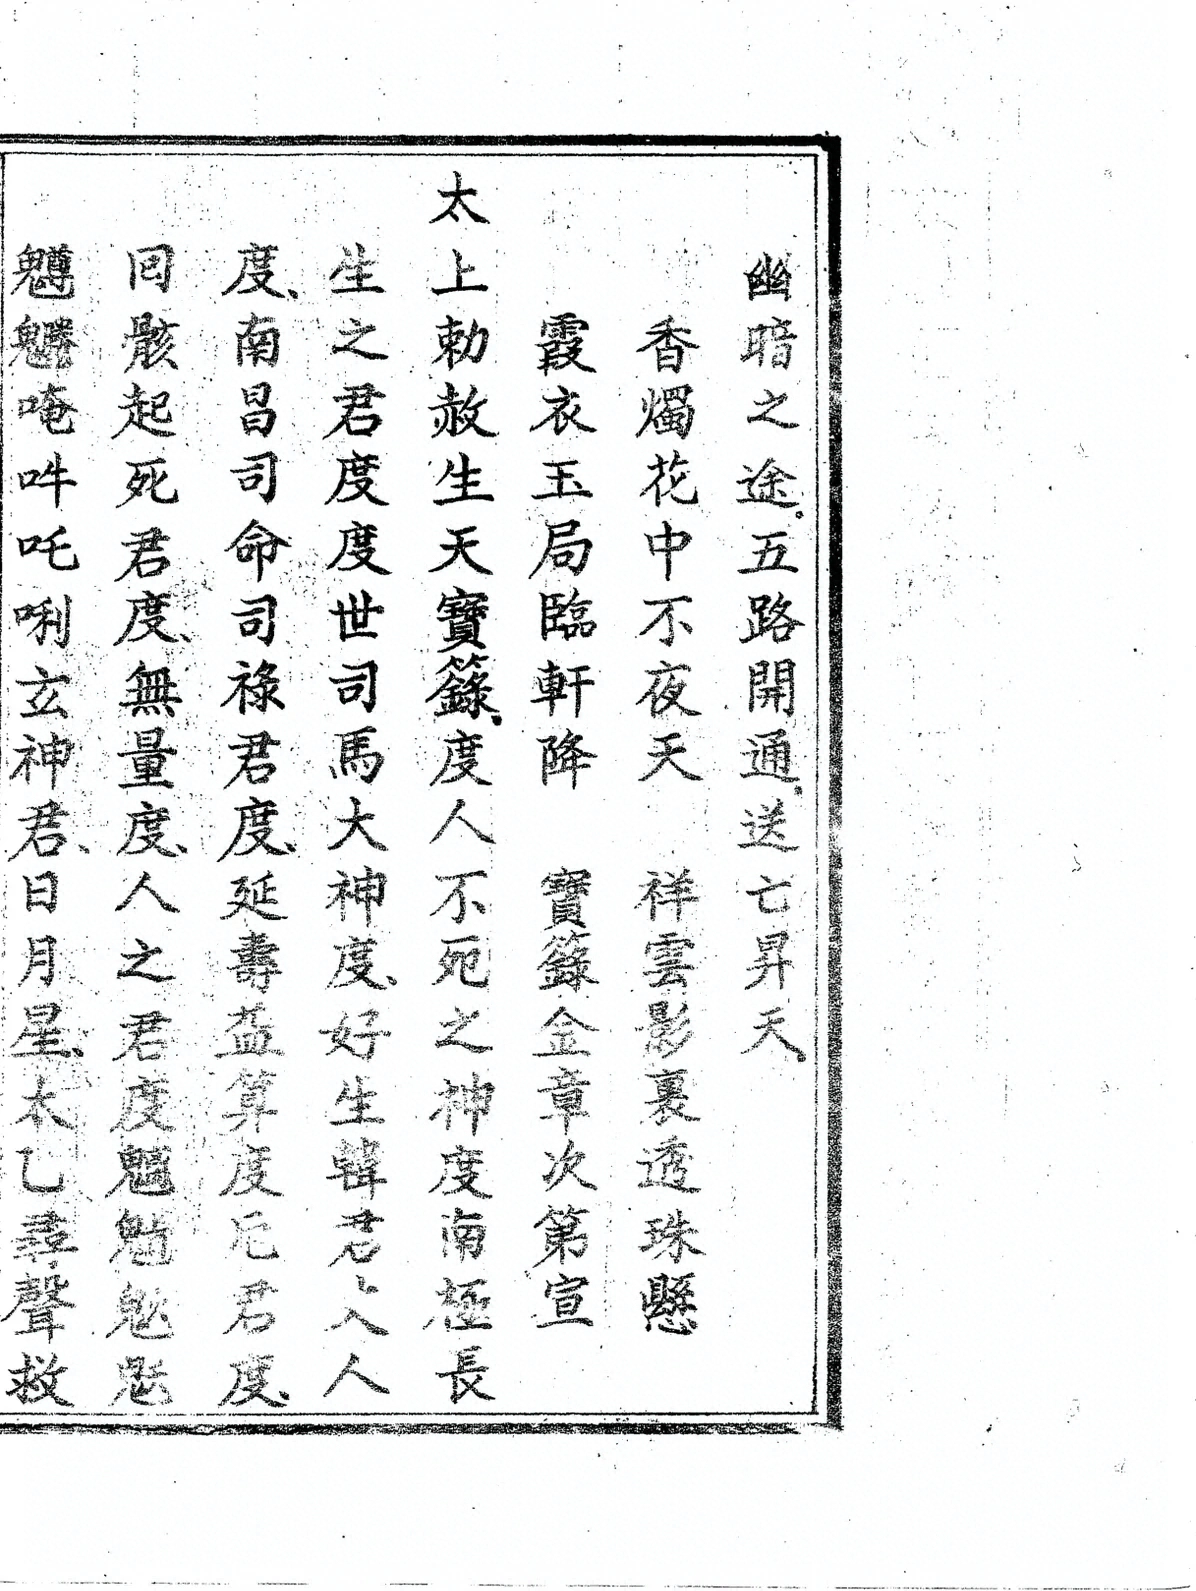 幽暗之途。五路開通。送亡昇天。
香燭花中不夜天　祥雲影裏透珠懸
霞衣玉局臨軒降　寶籙金章次第宣
太上勅赦生天寶籙、度人不死之神度南極長
生之君度度世司馬大神度、好生韓君丶入人
度、南昌司命司祿君度、延壽益算度厄君度、
囘骸起死君度、無量度、人之君度魁
唵吽吒唎玄神君、日月星、本乙尋聲救